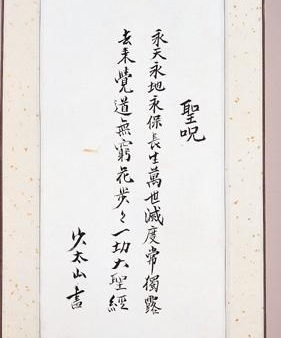 聖呪
永天永地永保長生萬世滅度常獨露
去来覺道無窮花步々一切大聖經
少太山書